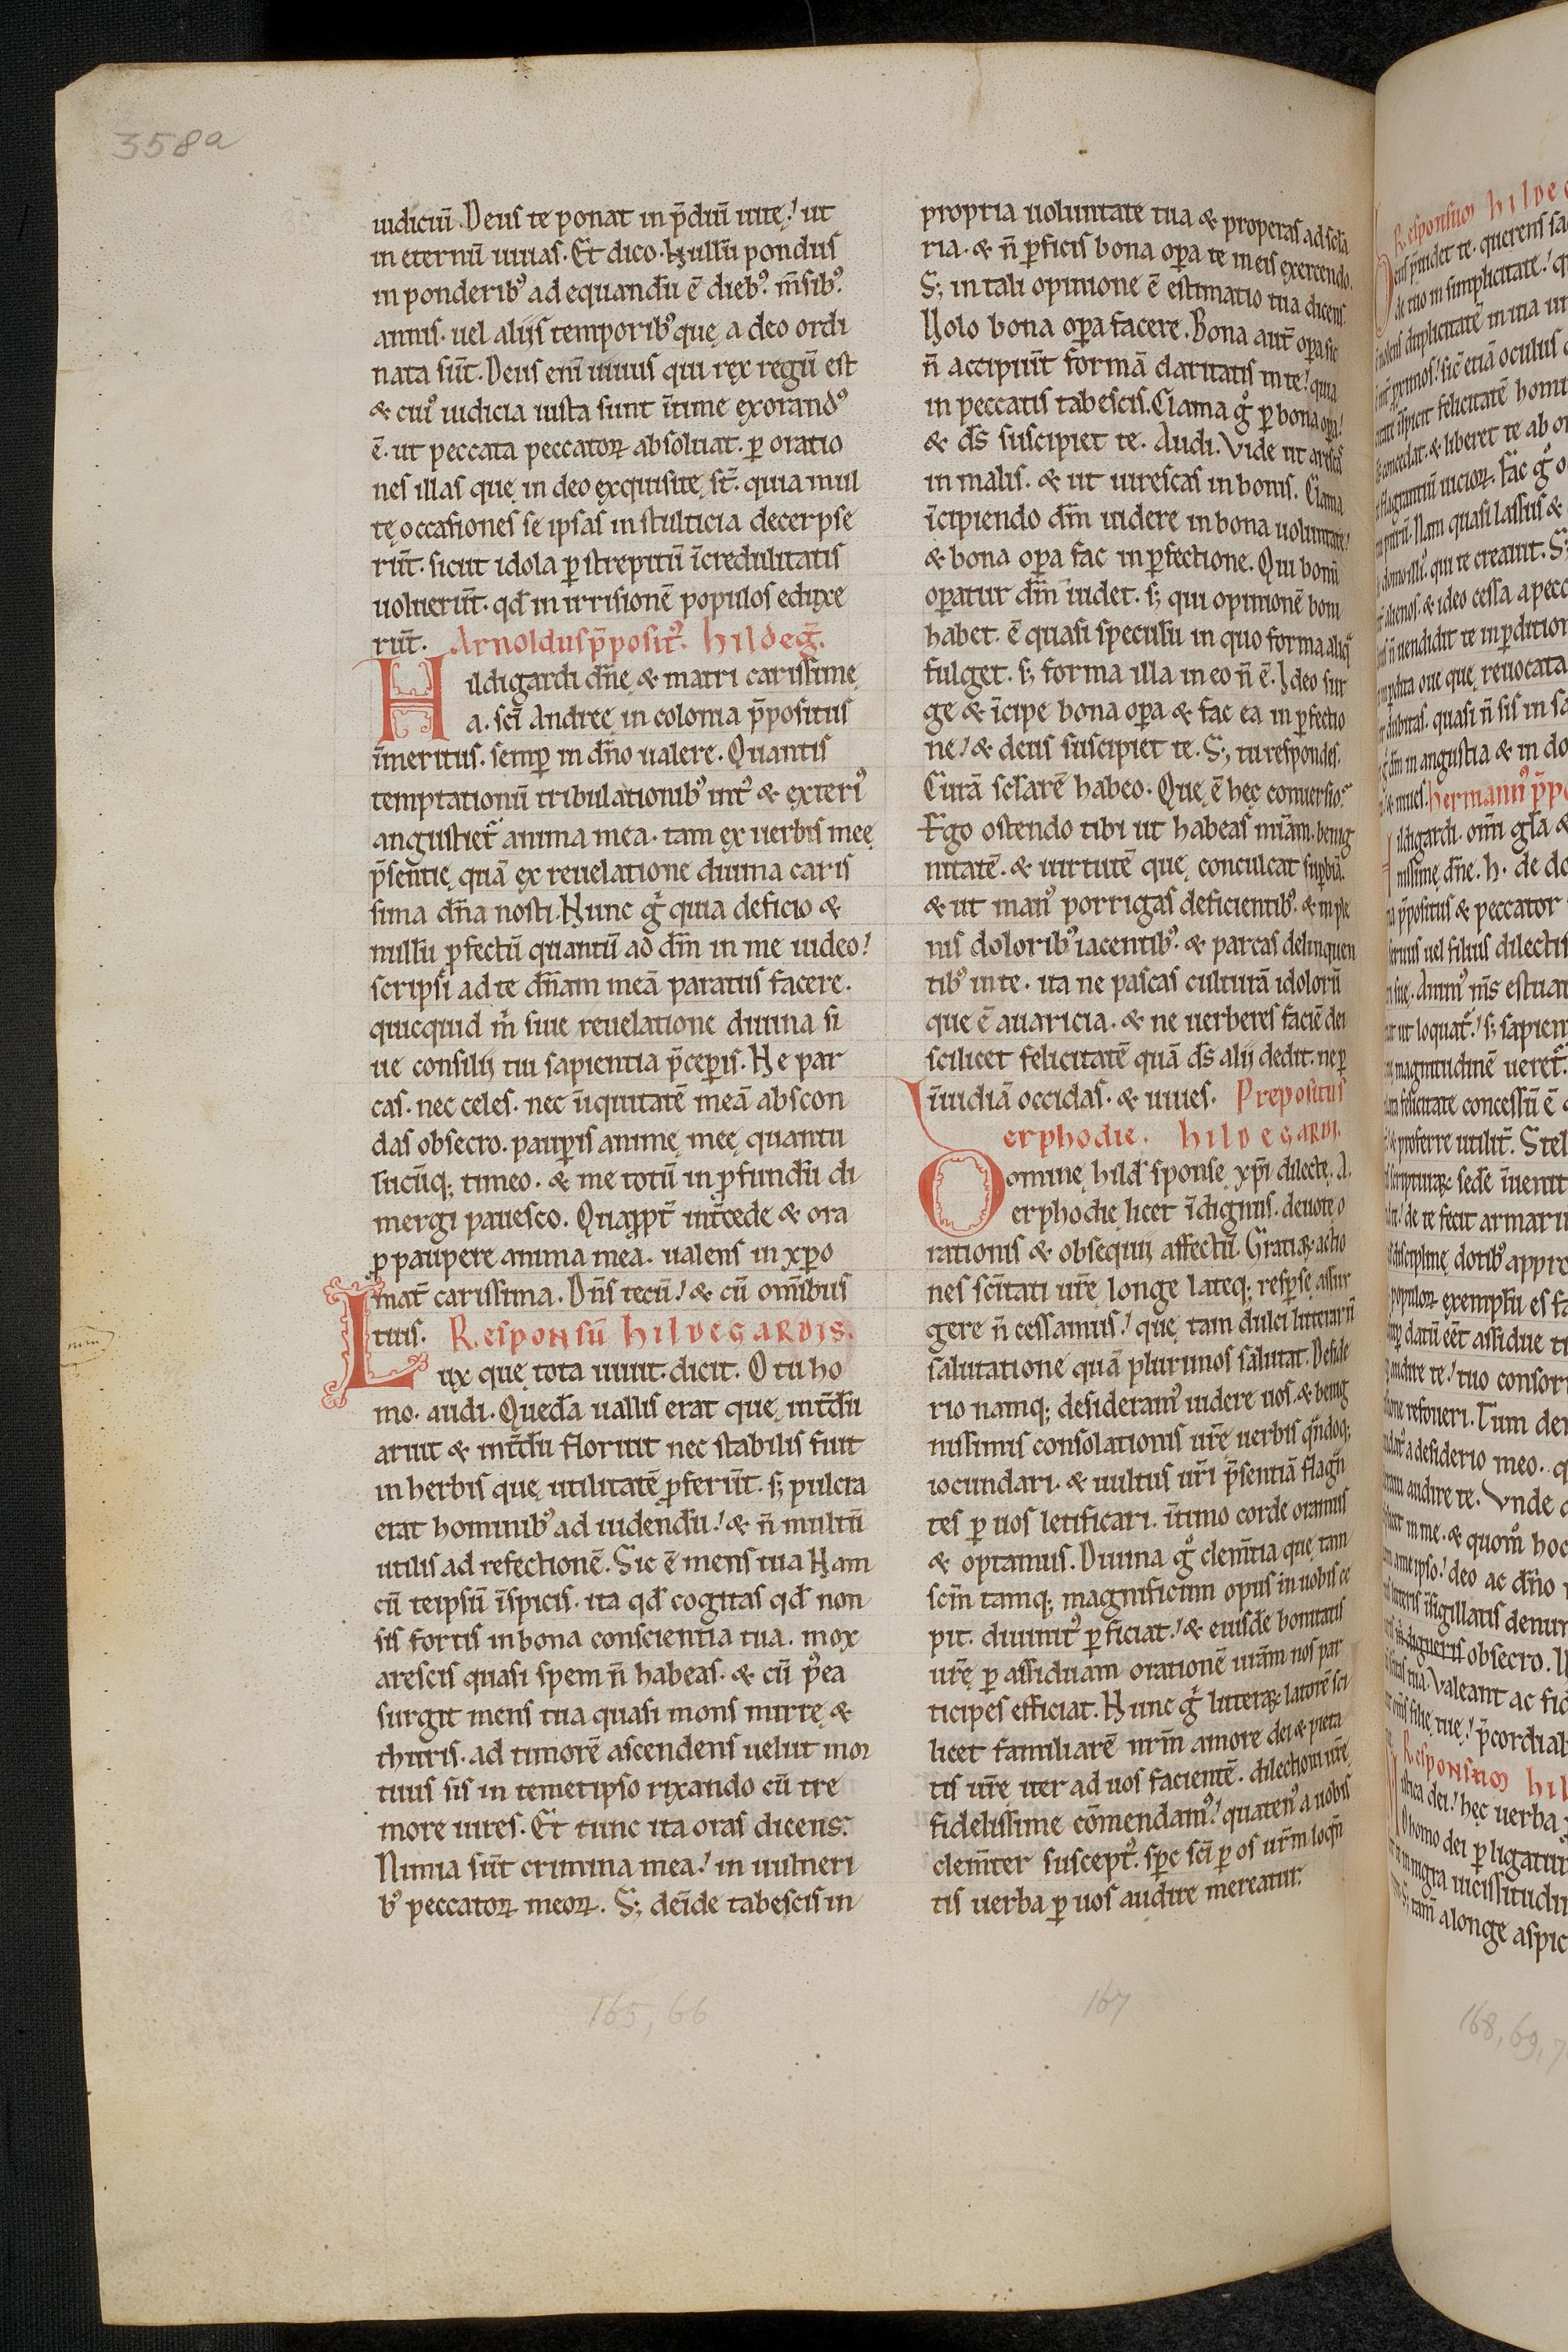 358a
iudiciū. Deus te ponat in p̄diū uitę! ut
in eternū uiuas. Et dico. Nullū pondus
in ponderibꝰ ad equandū ē diebꝰ. m̄sibꝰ.
annis. uel alijs temporibꝰ quę a deo ordi
nata sūt. Deus enī uiuus qui rex regū est
& cuiꝰ iudicia iusta sunt ītime exorandꝰ
ē. ut peccata peccatoꝝ absoluat. ꝑ oratio
nes illas quę in deo exquisitę st̄. quia mul
tę occasiones se ipsas in stulticia decerpse
rūt. sicut idola ꝑ strepitū īcredulitatis
uoluerūt. qđ in irrisionē populos eduxe
rūt. Arnoldus p̄positꝰ. hildeg̃.
Hildigardi dn̄ę & matri carissimę
a. sc̄i Andreę in colonia p̄positus
īmeritus. semꝑ in dn̄o ualere. Quantis
temptationū tribulationibꝰ int̄ꝰ & exteriꝰ
angustiet̄ anima mea. tam ex uerbis meę
p̄sentię quā ex reuelatione diuina caris
sima dn̄a nosti. Nunc g̊ quia deficio &
nullū ꝓfectū quantū ad dm̄ in me uideo!
scripsi ad te dn̄am meā paratus facere.
quicquid m̄ siue reuelatione diuina si
ue consilij tui sapientia p̄ceꝑis. Ne par
cas. nec celes. nec īiquitatē meā abscon
das obsecro. pauꝑis animę meę quantu
lūcūq; timeo. & me totū in ꝓfundū di
mergi pauesco. Quaꝓpt̄ int̄cede & ora
ꝓ paupere anima mea. ualens in xp̄o
mat̄ carissima. Dn̄s tecū! & cū omībus
tuis. Responsū hildegardis.
Lux quę tota uiuit. dicit. O tu ho
mo. audi. Quedā uallis erat quę int̄dū
aruit & int̄dū floruit nec stabilis fuit
in herbis quę utilitatē ꝓferūt. s; pulcra
erat hominibꝰ ad uidendū! & n̄ multū
utilis ad refectionē. Sic ē mens tua Nam
cū teipsū īspicis. ita qđ cogitas qđ non
sis fortis in bona conscientia tua. mox
arescis quasi spem n̄ habeas. & cū p̄ea
surgit mens tua quasi mons mirrę &
thuris. ad timorē ascendens uelut mor
tuus sis in temetipso rixando cū tre
more uires. Et tunc ita oras dicens.
Nimia sūt crimina mea! in uulneri
bꝰ peccatoꝝ meoꝝ. S; deīde tabescis in
propria uoluntate tua & properas ad scl̄a
ria. & n̄ ꝑficis bona oꝑa te in eis exercendo.
S; in tali opinione ē estimatio tua dicens
Uolo bona oꝑa facere. Bona aut̄ oꝑa sic
n̄ accipiūt formā claritatis in te! quia
in peccatis tabescis. Clama g̊ ꝑ bona oꝑa!
& ds̄ suscipiet te. Audi. Vide ut arescas
in malis. & ut uirescas in bonis. Clama
īcipiendo dm̄ uidere in bona uoluntate!
& bona oꝑa fac in ꝑfectione. Qui bonū
oꝑatur dm̄ uidet. s; qui opinionē boni
habet. ē quasi speculū in quo forma aliq̃
fulget. s; forma illa in eo n̄ ē. Ideo sur
ge & īcipe bona oꝑa & fac ea in ꝑfectio
ne! & deus suscipiet te. S; tu respondes.
Curā scl̄arē habeo. Quę ē hęc conuersio?
Ego ostendo tibi ut habeas mīam. benig
nitatē. & uirtutē quę conculcat suꝑbiā.
& ut manꝰ porrigas deficientibꝰ. & in ple
nis doloribꝰ iacentibꝰ. & parcas delinquen
tibꝰ in te. ita ne pascas culturā idolorū
que ē auaricia. & ne uerberes faciē dei
scilicet felicitatē quā ds̄ alij dedit. ne ꝑ
īuidiā occidas. & uiues. Prepositus
erphodie. hildegardi.
Dominę hild̄ sponsę xp̄i dilectę. A.
erphodię licet īdignus. deuote o
rationis & obsequij affectū. Gratiaꝝ actio
nes sc̄itati ur̄ę longe lateq; resꝑsę assur
gere n̄ cessamus! quę tam dulci litterarū
salutatione quā plurimos salutat. Deside
rio namq; desideramꝰ uidere uos. & benig
nissimis consolationis ur̄ę uerbis qn̄doq;
iocundari. & uultus ur̄i p̄sentiā flagn̄
tes ꝑ uos letificari. ītimo corde oramus
& optamus. Diuina g̊ clem̄tia quę tam
scm̄ tamq; magnificum opus in uobis ce
pit. diuinitꝰ ꝑficiat! & eiusdē bonitatis
ur̄ę ꝑ assiduam orationē ur̄am nos par
ticipes efficiat. Nunc g̊ litteraꝝ latorē sci
licet familiarē nr̄m amore dei & pieta
tis ur̄ę iter ad uos facientē. dilectioni ur̄ę
fidelissime cōmendamꝰ! quatenꝰ a uobis
clem̄ter susceptꝰ. spc̄ sc̄i ꝑ os ur̄m loqn̄
tis uerba ꝑ uos audire mereatur.
165, 66
167
168, 69, 7